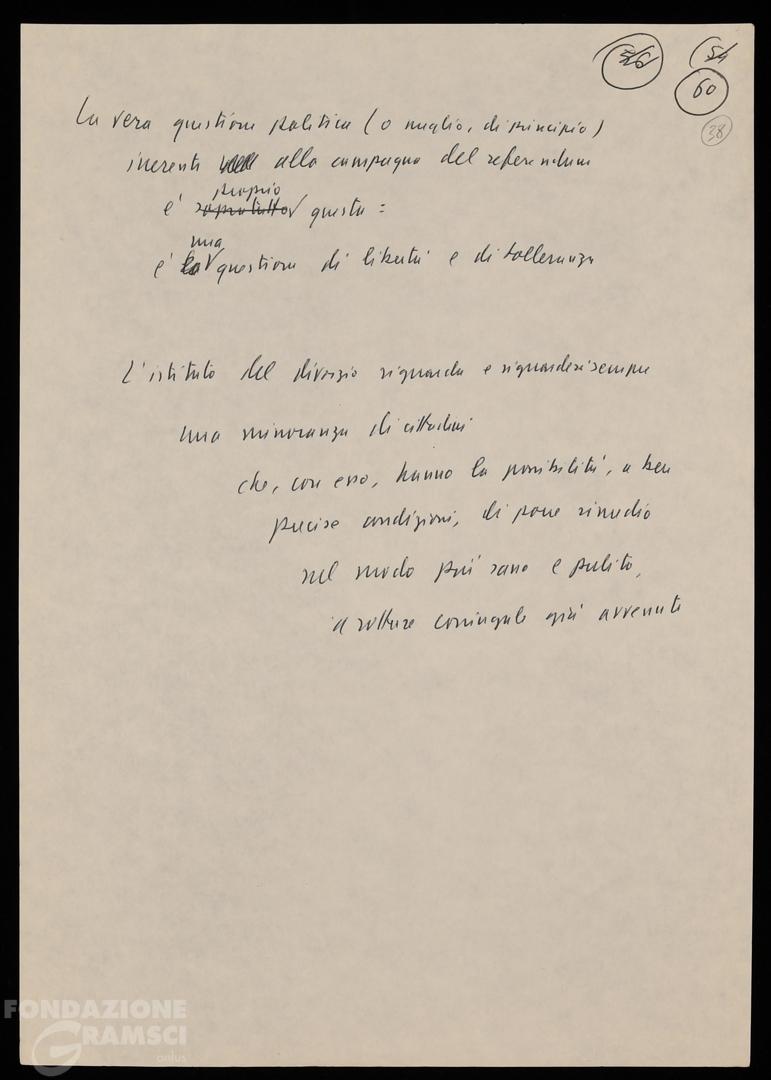 56 54
60
38
La vera questione politica (o meglio, di principio)
inerente alla campagna del referendum
proprio
è soprattutto questa:
una
è la questione di libertà e di tolleranza
L'istituto del divorzio riguarda e riguarderà sempre
una minoranza di cittadini
che, con esso, hanno la possibilità, a ben
precise condizioni, di porre rimedio
nel modo più sano e pulito,
a rotture coniugali già avvenute
FONDAZIONE
GRAMSCI
onlus